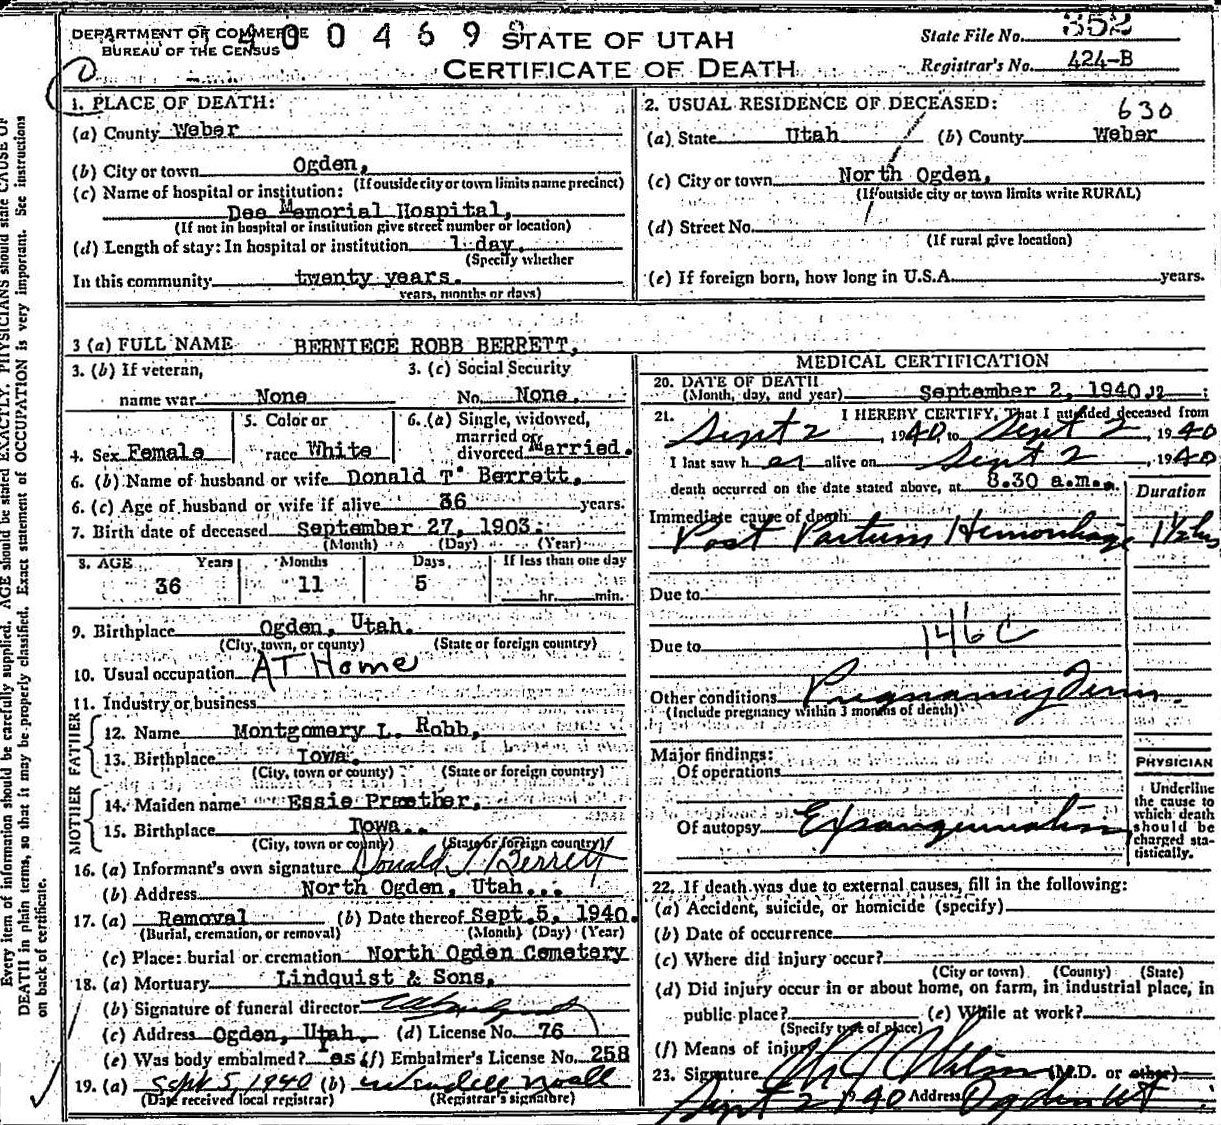 DEPARTMENT OF COMMERCE
BUREAU OF THE CENSUS
400469
STATE OF UTAH
CERTIFICATE OF DEATH
State File No. 352
Registrar's No. 424-B
1. PLACE OF DEATH:
(a) County Weber
(b) City or town Ogden,
(If outside city or town limits name precinct)
(c) Name of hospital or institution:
Dee Memorial Hospital,
(If not in hospital or institution give street number or location)
(d) Length of stay: In hospital or institution 1 day.
(Specify whether
In this community twenty years.
years, months or days)
2. USUAL RESIDENCE OF DECEASED:
630
(a) State Utah (b) County Weber
(c) City or town North Ogden,
(If outside city or town limits write RURAL)
(d) Street No.
(If rural give location)
(e) If foreign born, how long in U.S.A. years.
3 (a) FULL NAME BERNIECE ROBB BERRETT,
3. (b) If veteran,
name war None
3. (c) Social Security
No. None.
4. Sex Female
5. Color or
race White
6. (a) Single, widowed,
married or
divorced Married.
6. (b) Name of husband or wife Donald T. Berrett,
6. (c) Age of husband or wife if alive 36 years.
7. Birth date of deceased September 27, 1903.
(Month) (Day) (Year)
8. AGE Years Months Days If less than one day
36 11 5 hr. min.
9. Birthplace Ogden, Utah.
(City, town, or county) (State or foreign country)
10. Usual occupation AT Home
11. Industry or business
FATHER
12. Name Montgomery L. Robb,
13. Birthplace Iowa.
(City, town or county) (State or foreign country)
MOTHER
14. Maiden name Essie Praether,
15. Birthplace Iowa.
(City, town or county) (State or foreign country)
16. (a) Informant's own signature Donald T. Berrett
(b) Address North Ogden, Utah.
17. (a) Removal (b) Date thereof Sept. 5, 1940.
(Burial, cremation, or removal) (Month) (Day) (Year)
(c) Place: burial or cremation North Ogden Cemetery
18. (a) Mortuary Lindquist & Sons,
(b) Signature of funeral director
(c) Address Ogden, Utah. (d) License No. 76
(e) Was body embalmed? Yes (f) Embalmer's License No. 258
19. (a) Sept 5, 1940 (b) Wendell Noall
(Date received local registrar) (Registrar's signature)
MEDICAL CERTIFICATION
20. DATE OF DEATH
(Month, day, and year) September 2, 1940.
21. I HEREBY CERTIFY, That I attended deceased from
Sept 2, 1940 to Sept 2 1940
I last saw her alive on Sept 2, 1940
death occurred on the date stated above, at 8.30 a.m.
Duration
Immediate cause of death
Post Partum Hemorrhage 1½ hrs
Due to
146C
Due to
Other conditions Pregnancy Term
(Include pregnancy within 3 months of death)
Major findings:
Of operations
Of autopsy Exsanguination
PHYSICIAN
Underline
the cause to
which death
should be
charged sta-
tistically.
22. If death was due to external causes, fill in the following:
(a) Accident, suicide, or homicide (specify)
(b) Date of occurrence
(c) Where did injury occur?
(City or town) (County) (State)
(d) Did injury occur in or about home, on farm, in industrial place, in
public place? (e) While at work?
(Specify type of place)
(f) Means of injury
23. Signature (M.D. or other)
Sept 2 1940 Address Ogden Ut
Every item of information should be carefully supplied. AGE should be stated EXACTLY. PHYSICIANS should state CAUSE OF
DEATH in plain terms, so that it may be properly classified. Exact statement of OCCUPATION is very important. See instructions
on back of certificate.